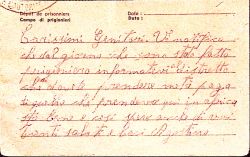 Dépôt de prisonniers
Campo di prigionieri
Date:
Data:
Carissimi Genitori. Vi notifico
che dal giorno che sono stato fatto
prigioniero informatevi distretto
che dovete prendere metà paga
uguale che prendevo più in africa
sto bene e così spero anche di voi
tanti saluti e baci